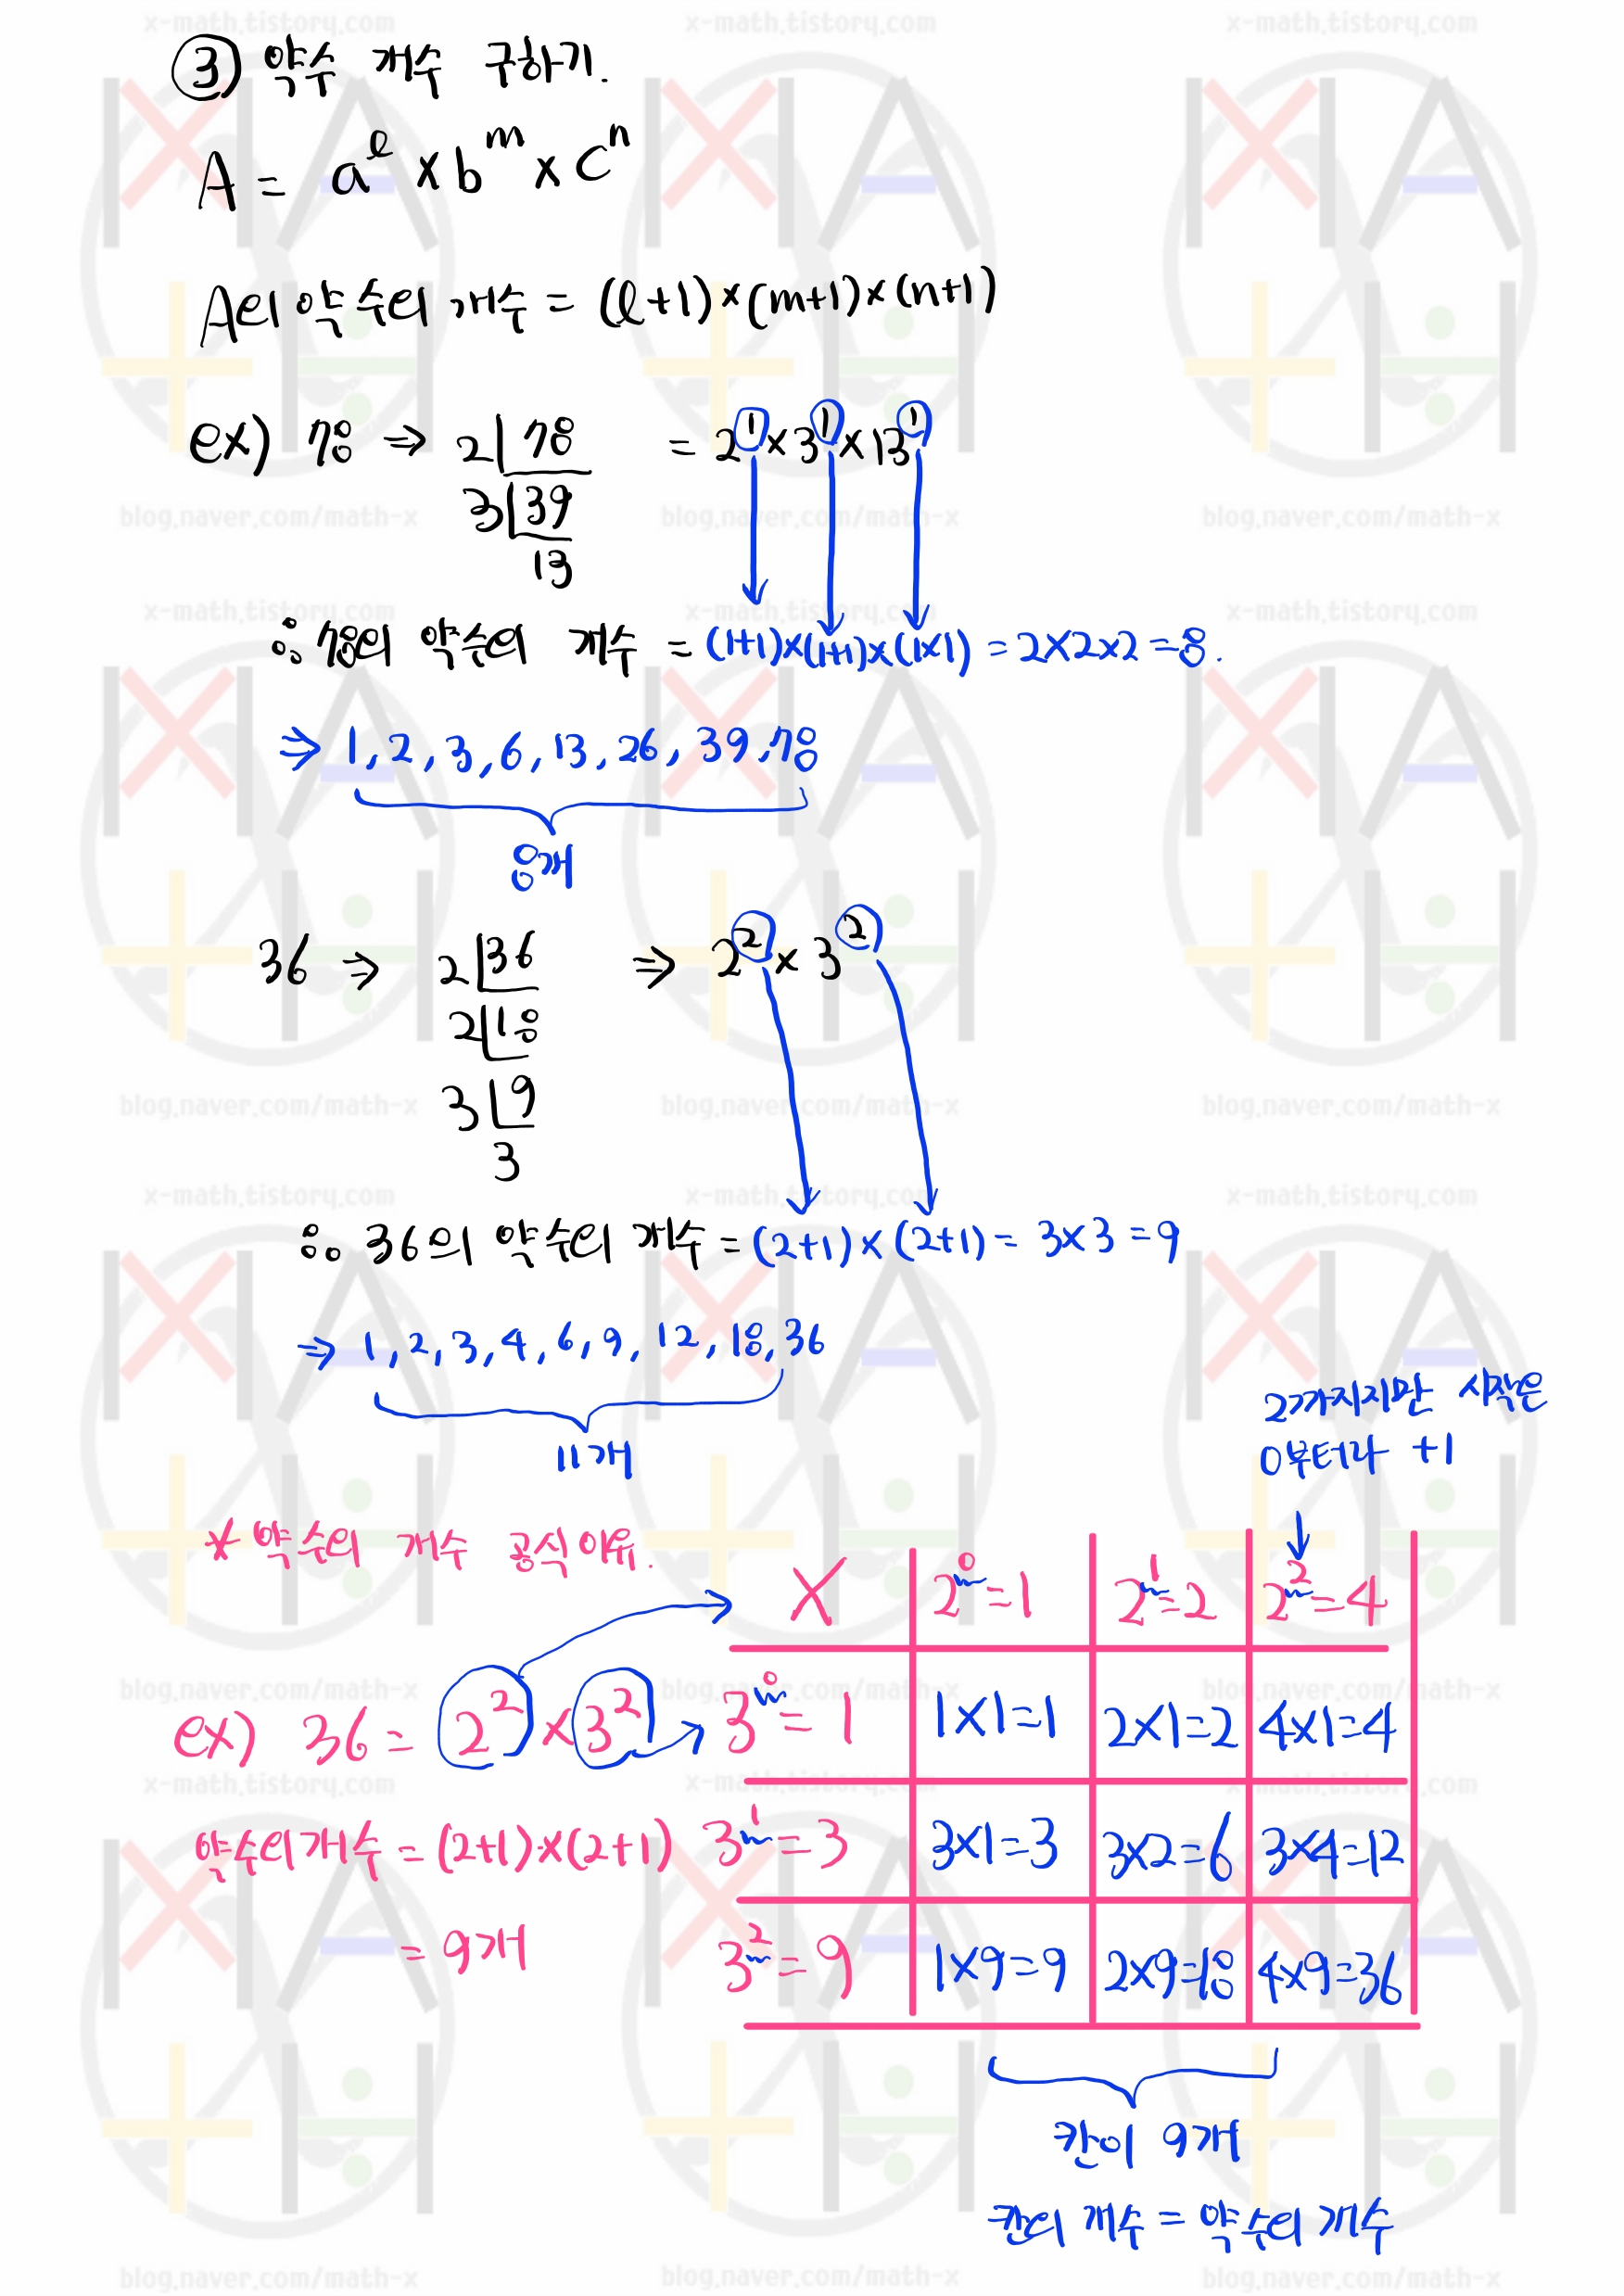 ③ 약수 개수 구하기.
A = a^ℓ × b^m × c^n
A의 약수의 개수 = (ℓ+1)×(m+1)×(n+1)
ex) 78 ⇒ 2 78 = 2^1×3^1×13^1
3 39
13
∴ 78의 약수의 개수 = (1+1)×(1+1)×(1×1) = 2×2×2 = 8.
⇒ 1, 2, 3, 6, 13, 26, 39, 78
8개
36 ⇒ 2 36 ⇒ 2^2 × 3^2
2 18
3 9
3
∴ 36의 약수의 개수 = (2+1)×(2+1) = 3×3 = 9
⇒ 1, 2, 3, 4, 6, 9, 12, 18, 36
11개
2까지지만 시작은
0부터라 +1
* 약수의 개수 공식 이유.
× 2^0=1 2^1=2 2^2=4
ex) 36 = 2^2×3^2 3^0=1 1×1=1 2×1=2 4×1=4
약수의 개수 = (2+1)×(2+1) 3^1=3 3×1=3 3×2=6 3×4=12
= 9개 3^2=9 1×9=9 2×9=18 4×9=36
칸이 9개
칸의 개수 = 약수의 개수
x-math.tistory.com
blog.naver.com/math-x